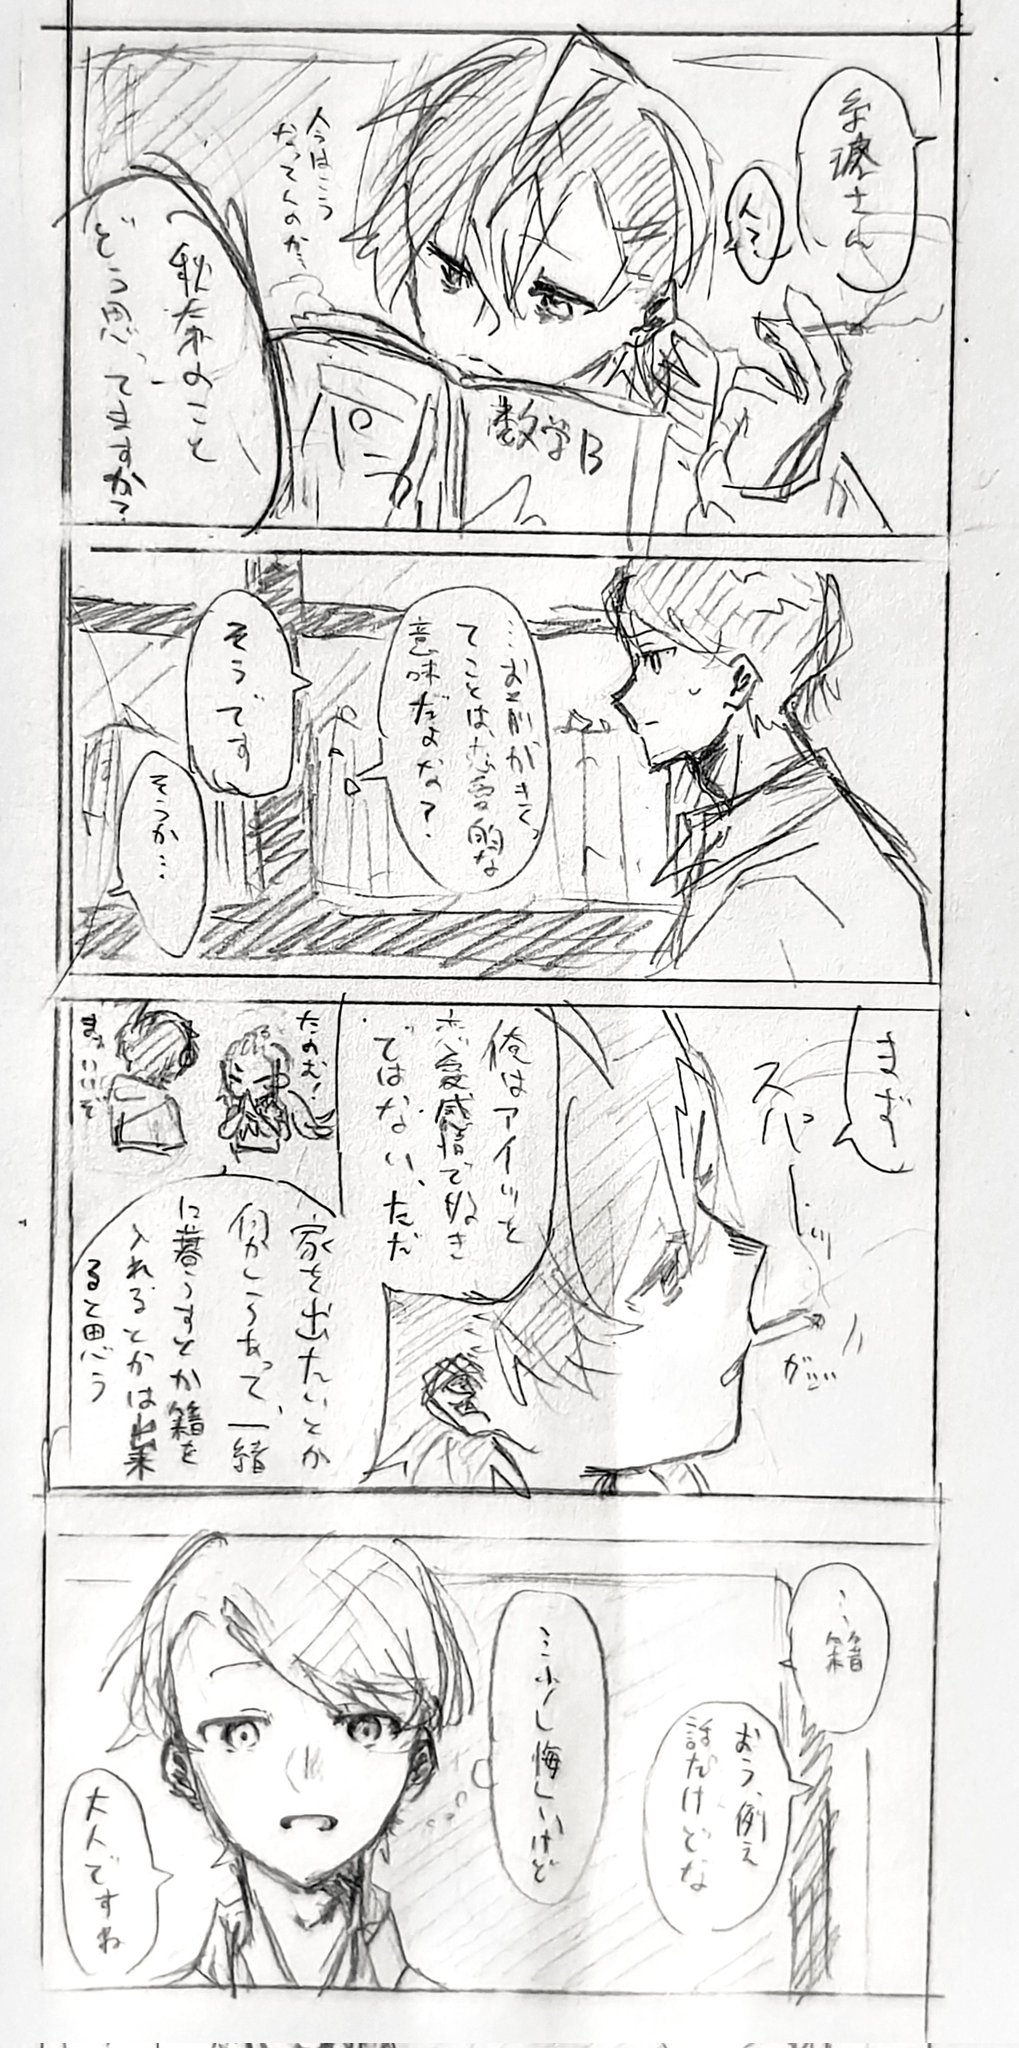 さん
ん?
今はこう
なってんのか…
数学B
秋奈のこと
どう思ってますか?
…お前がきくっ
てことは恋愛的な
意味だよな?
そうです
そうか…
まず
スパーッ
俺はアイツと
恋愛感情でぬき
ではない、ただ
たのむ!
まぁいいぞ
家を出たいとか
何かしらあって、一緒
に暮らすとか籍を
入れるとかは出来
ると思う
…籍
おう、例え
話だけどな
悔しいけど
大人ですね